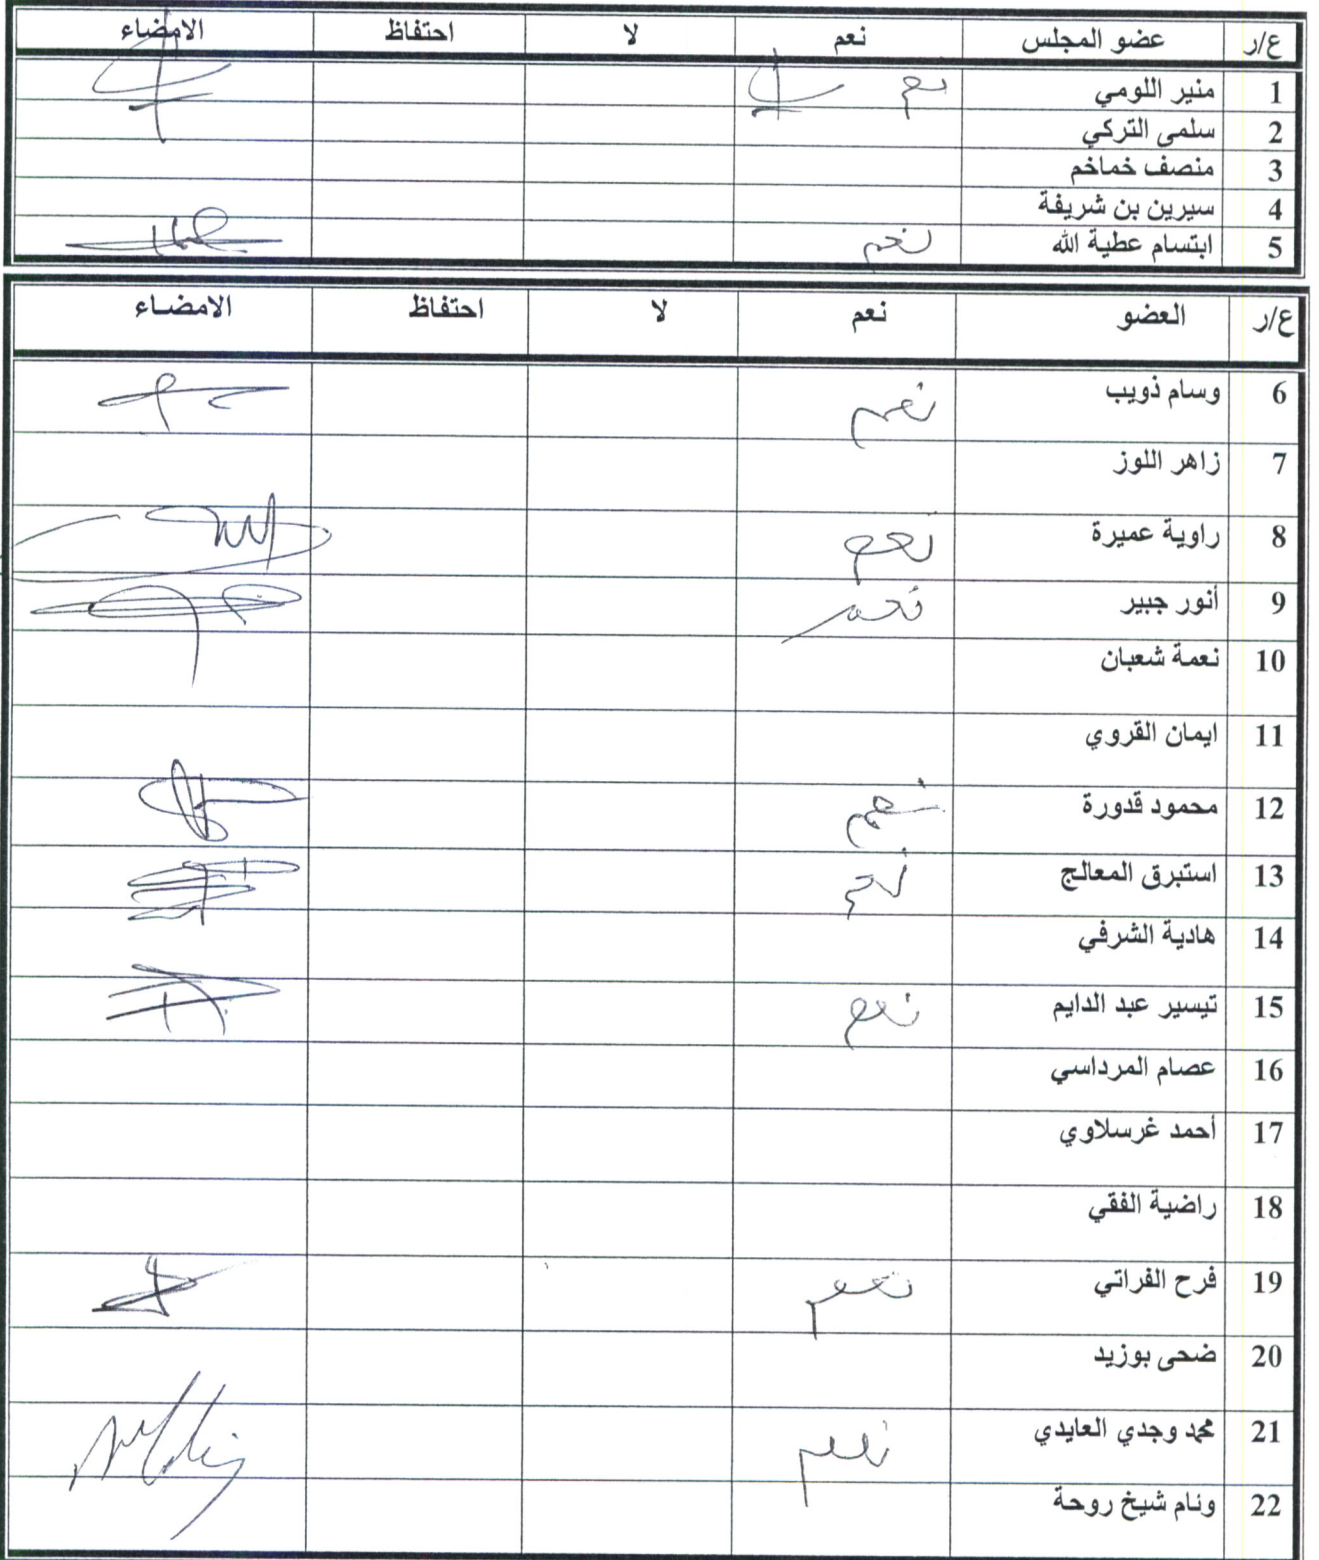 ع/ر عضو المجلس نعم لا احتفاظ الامضاء
1 منير اللومي نعم
2 سلمى التركي
3 منصف خماخم
4 سيرين بن شريفة
5 ابتسام عطية الله نعم
ع/ر العضو نعم لا احتفاظ الامضاء
6 وسام ذويب نعم
7 زاهر اللوز
8 راوية عميرة نعم
9 أنور جبير نعم
10 نعمة شعبان
11 ايمان القروي
12 محمود قدورة نعم
13 استبرق المعالج نعم
14 هادية الشرفي
15 تيسير عبد الدايم نعم
16 عصام المرداسي
17 أحمد غرسلاوي
18 راضية الفقي
19 فرح الفراتي نعم
20 ضحى بوزيد
21 محمد وجدي العايدي نعم
22 ونام شيخ روحة